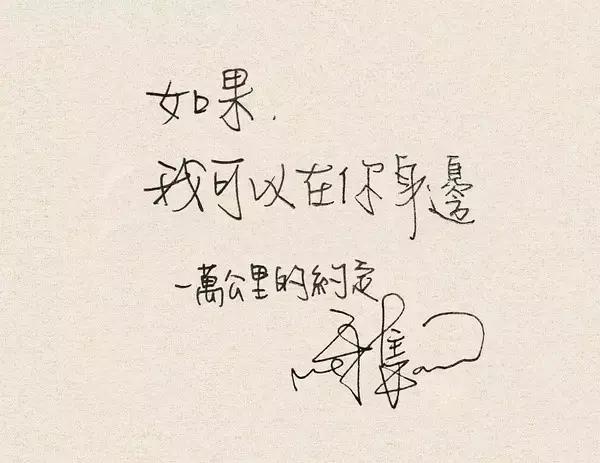 如果，
我可以在你身邊
一萬公里的約定